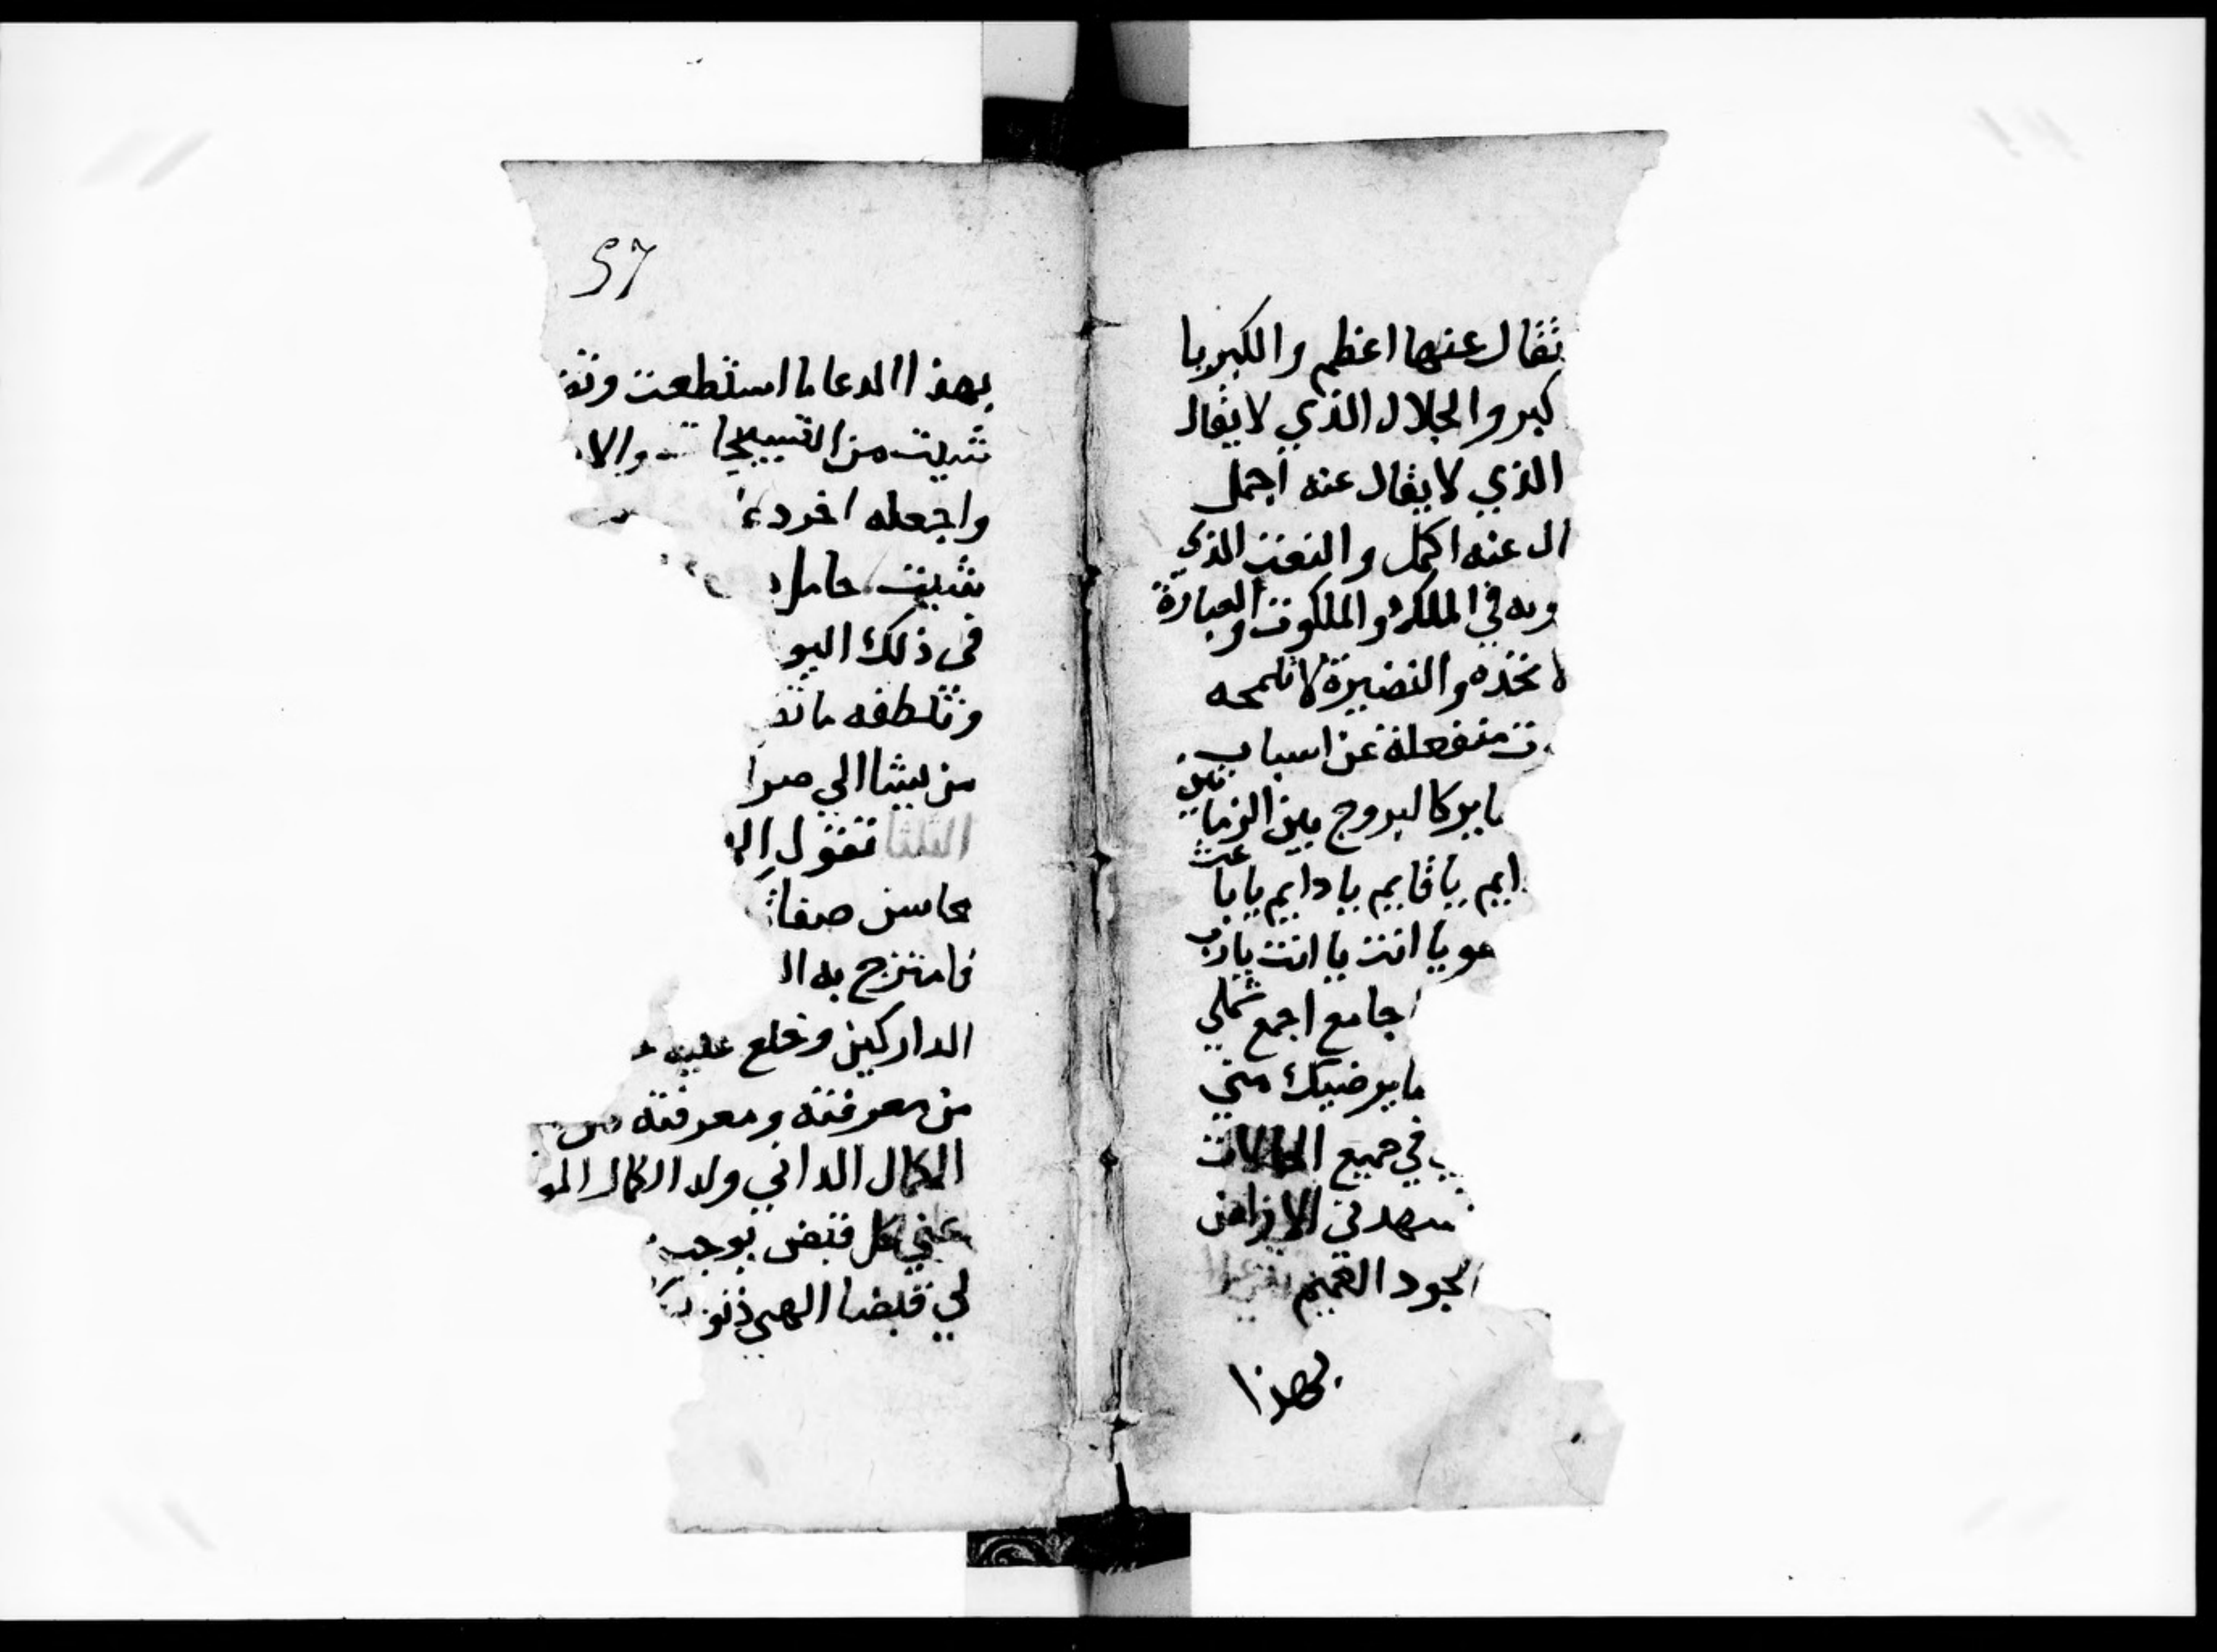 تقال عنها اعظم والكبريا
كبر والجلال الذي لا يقال
الذي لا يقال عنه اجمل
ال عنه اكمل والنعت الذي
وبه في الملك والملكوت والعبارة
لا تحده والنضيرة لا تلمحه
ت منفعلة عن اسباب
يا بركا لبروج بين الزمانين
ايم يا قايم يا دايم يا باعث
هو يا انت يا انت يا رب
جامع اجمع شملي
ما يرضيك مني
في جميع الحالات
الاراضي
الجود العميم
بهذا
57
بهذا الدعا ما استطعت وتق
شيت من التسبيحات والا
واجعله اخر دعا
شيت حامل
في ذلك اليو
وتلطفه ما تق
من يشا الي صرا
الثلثا تقول ال
محاسن صفا
فامتزج به ا
الداركين وخلع عليه
من معرفته ومعرفته من
الكمال الداتي وله الكمال المو
عني كل قبض بوجب
لي قبضا الهي ذنو